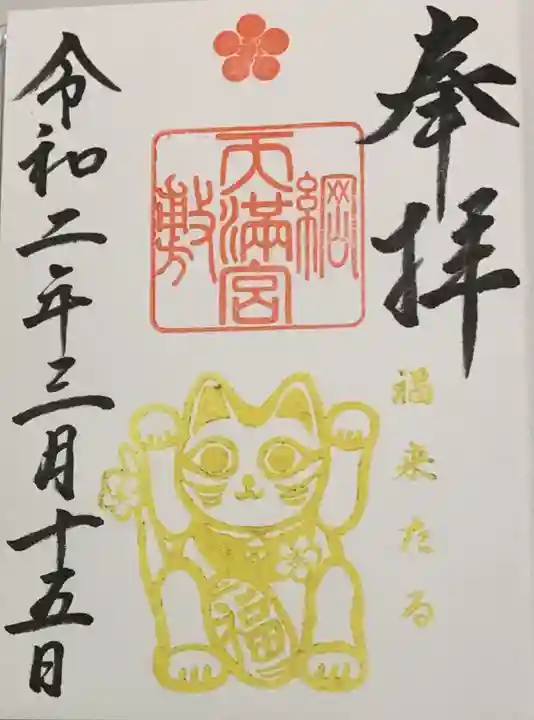 奉拝
綱
天満宮
敷
福来たる
福
令和二年三月十五日